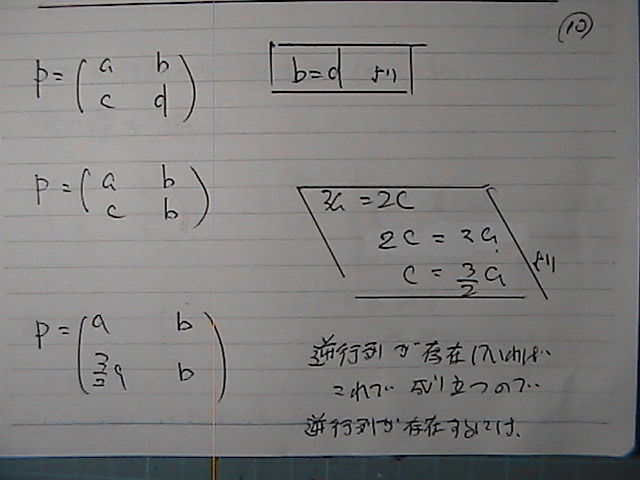 ⑩
p = ( a b
c d )
b = d より
p = ( a b
c b )
3a = 2c
2c = 3a
c = 3/2 a より
p = ( a b
3/2 a b )
逆行列が存在していれば
これで成り立つので
逆行列が存在するには、